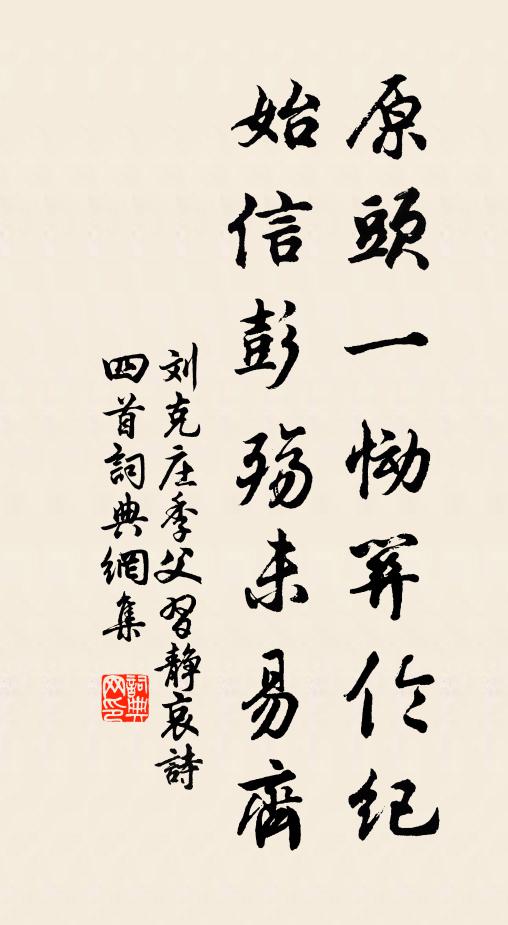 原頭一慟紀
始信彭殤未易齊
刘克庄季父習靜哀詩
四首詞典網集
詞典
网印